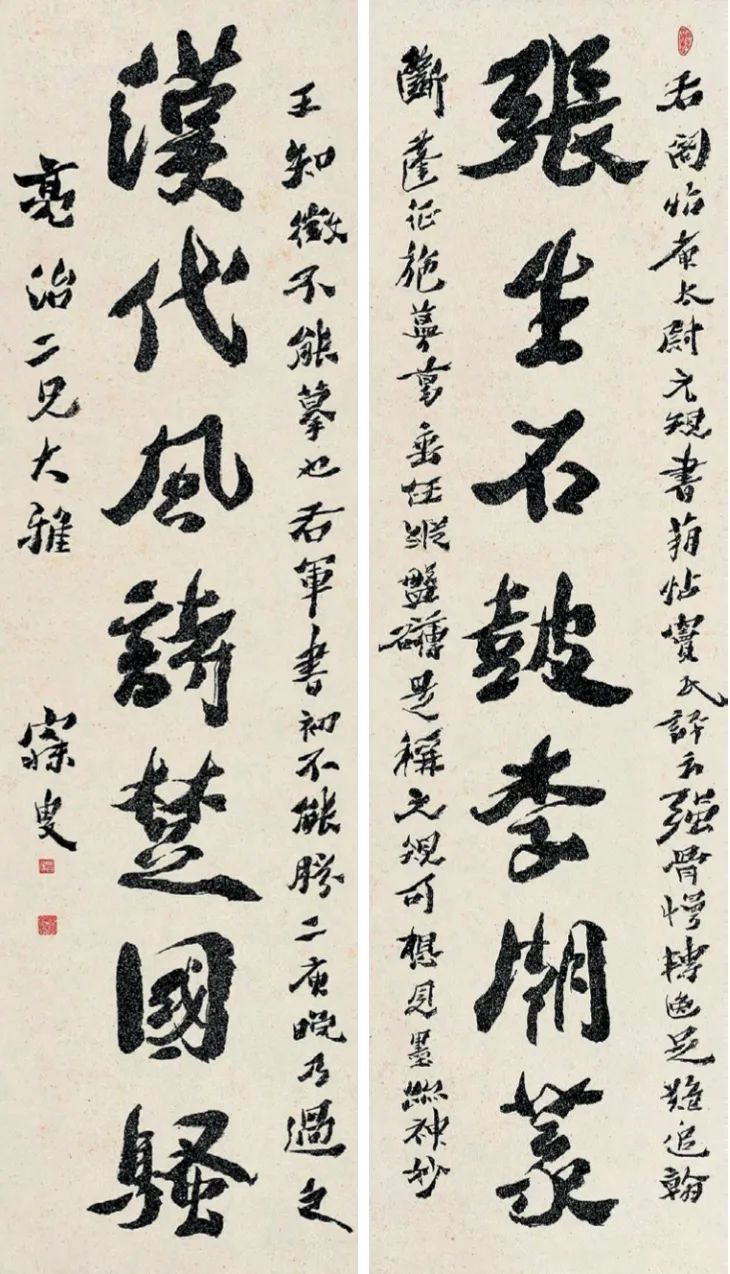 右閣帖庾太尉元規書箱帖竇氏評云强骨慢轉逸足難追翰
張生石鼓李潮篆
斷蓬征施蔓葛垂任縱盤礴是稱元規可想見墨蹤神妙
王知微不能摹也右軍書初不能勝二庾晚乃過之
漢代風詩楚國騷
亮治二兄大雅
寐叟